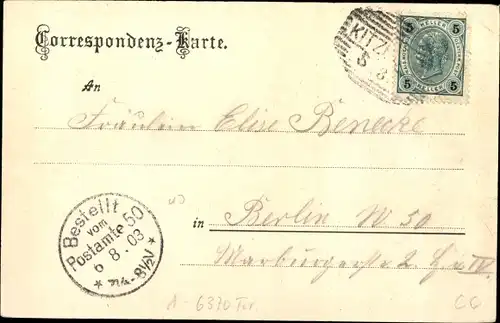 Correspondenz-Karte.
5 HELLER 5
5 HELLER 5
KITZ
5 8
An
Fräulein Elise Benecke
in Berlin W 50
Marburgerstr 2 IV
Bestellt
vom
Postamte 50
6 8. 03
* 7¼-8½V *
A-6370